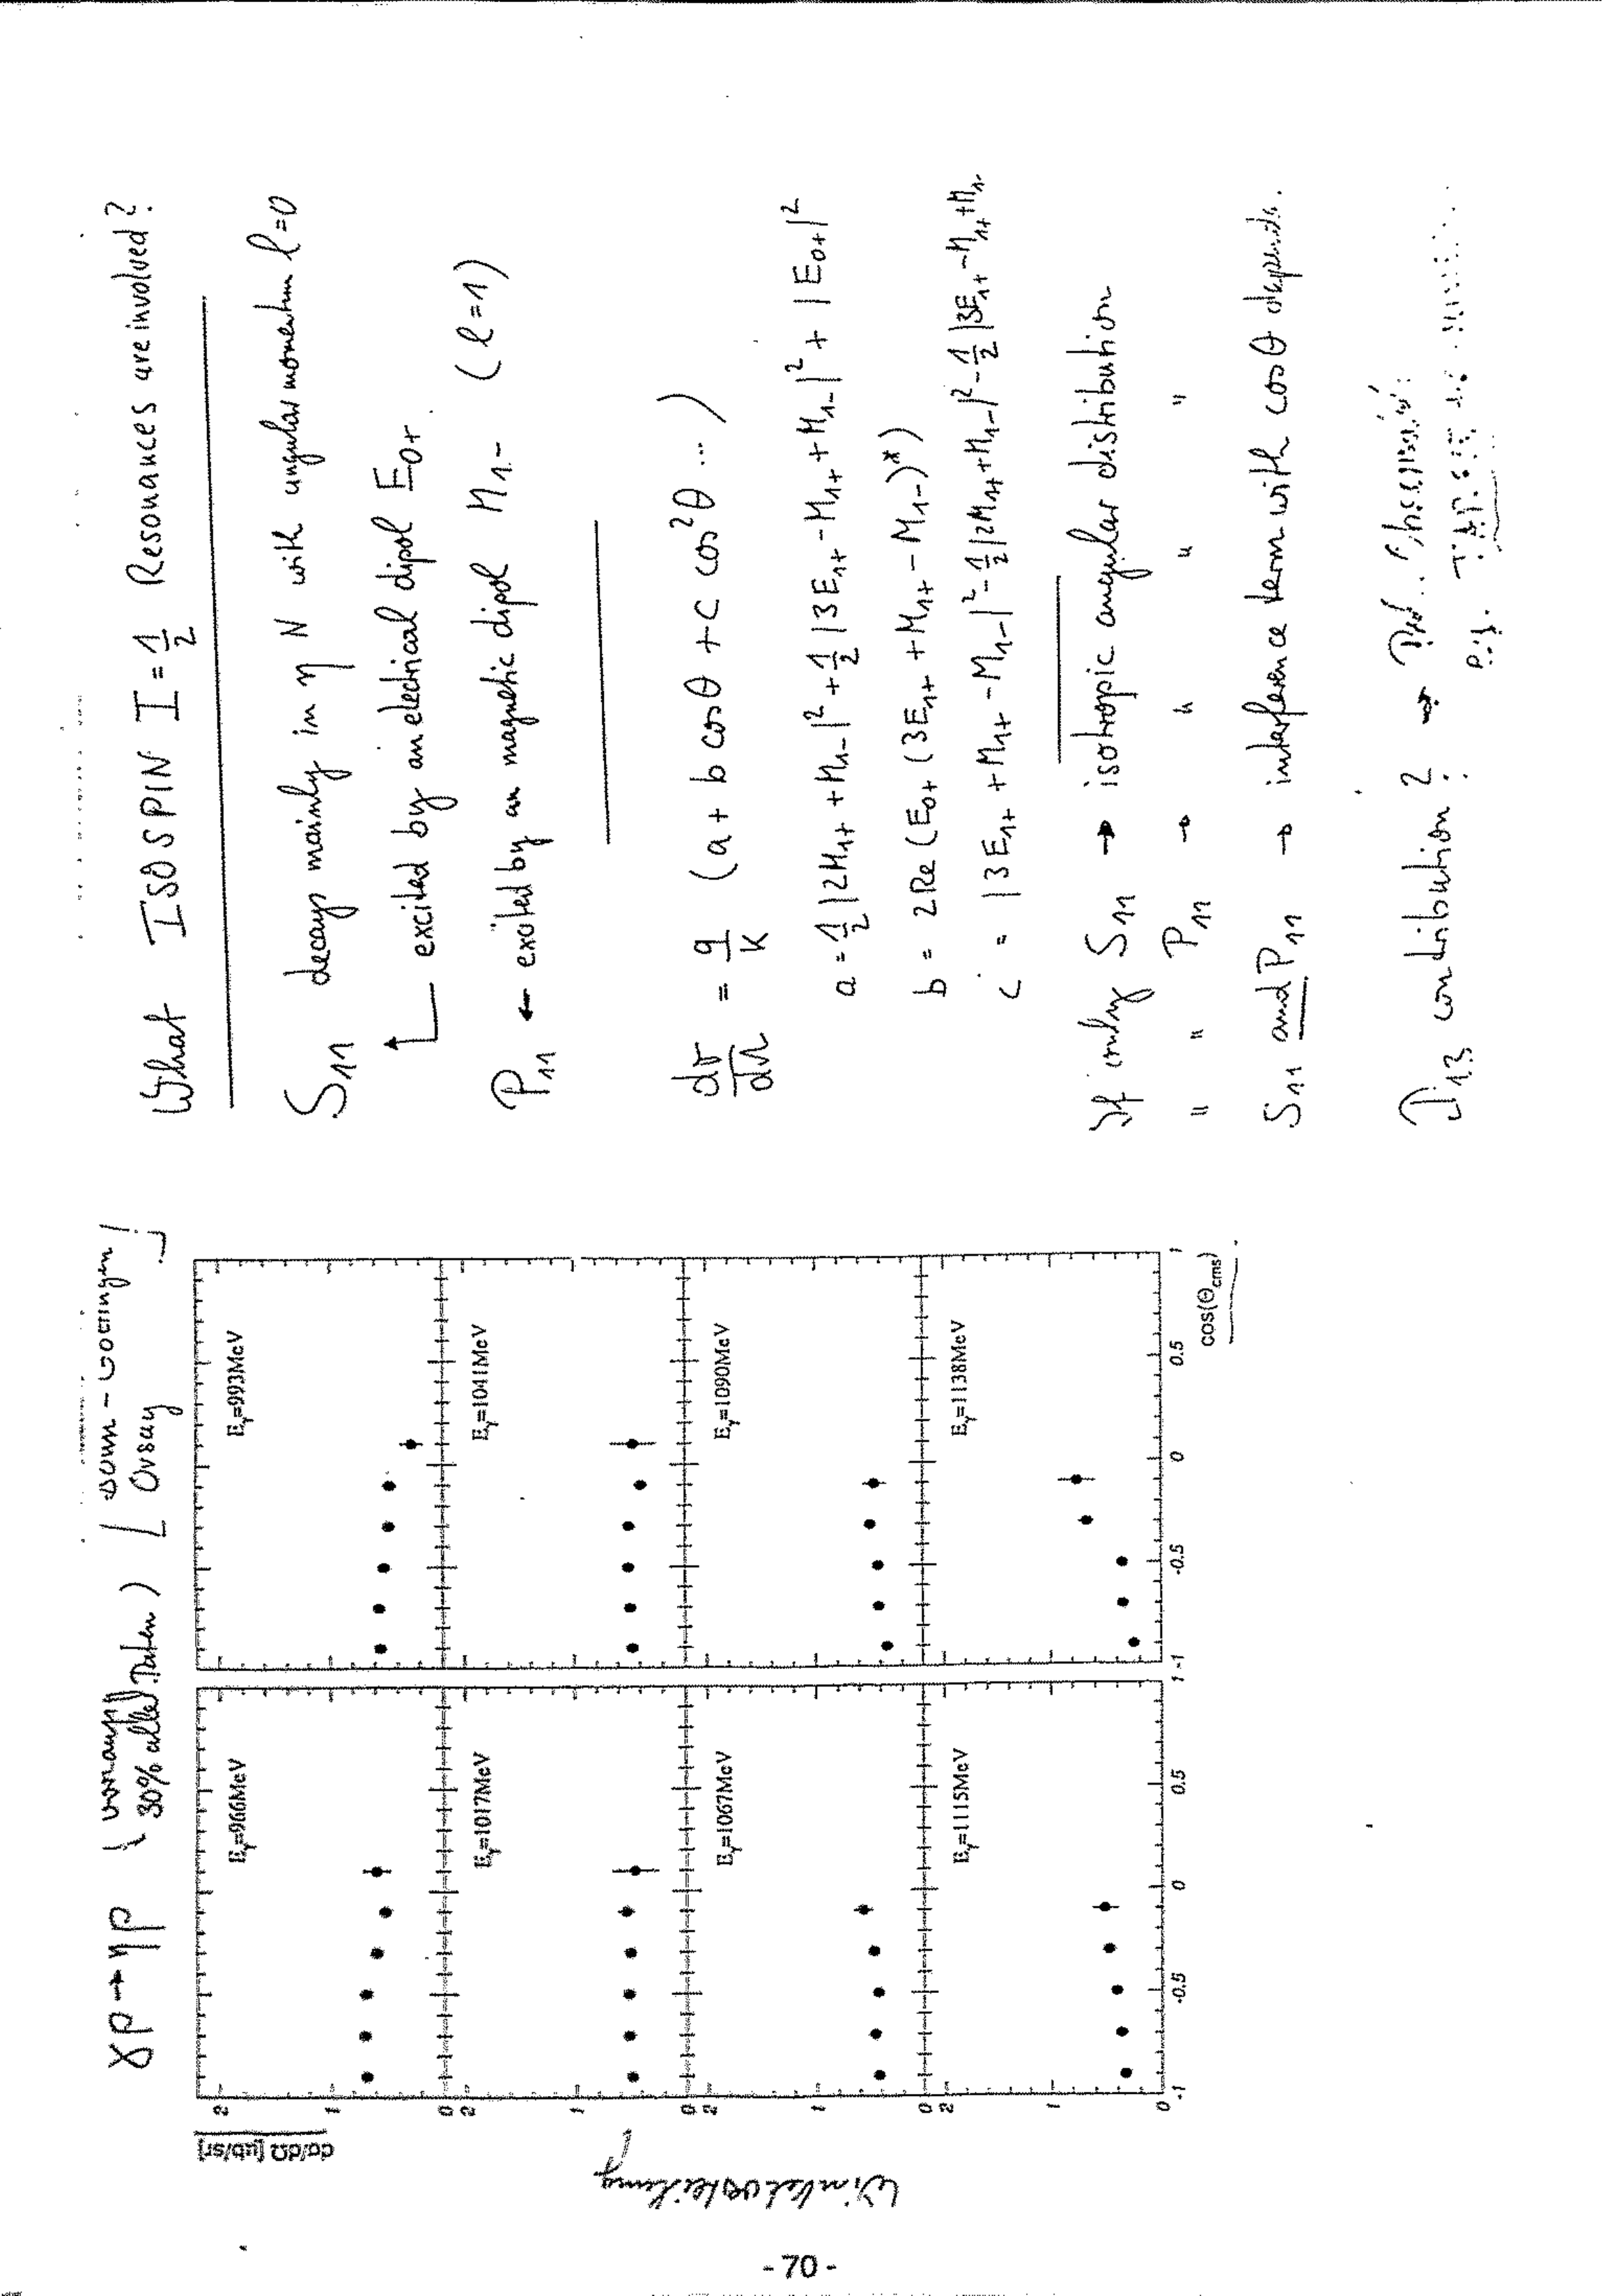 γp → ηp
30% aller Daten )
Orsay
dσ/dΩ [μb/sr]
Winkelverteilung
Eγ=966MeV
Eγ=993MeV
Eγ=1017MeV
Eγ=1041MeV
Eγ=1067MeV
Eγ=1090MeV
Eγ=1115MeV
Eγ=1138MeV
2
1
0
2
1
0
2
1
0
2
1
0
-1 -0.5 0 0.5 1
-1 -0.5 0 0.5 1
cos(Θcms)
What ISOSPIN I = 1/2 Resonances are involved?
S11 decays mainly in η N with angular momentum l=0
excited by an electrical dipol E0+
P11 ← exited by an magnetic dipol M1- (l=1)
dσ/dΩ = q/k (a + b cosθ + c cos²θ ... )
a = 1/2 |2M1+ + M1-|² + 1/2 |3E1+ - M1+ + M1-|² + |E0+|²
b = 2Re (E0+ (3E1+ + M1+ - M1-)*)
c = |3E1+ + M1+ - M1-|² - 1/2 |2M1+ + M1-|² - 1/2 |3E1+ - M1+ + M1-
If only S11 → isotropic angular distribution
" " P11 → " " "
S11 and P11 → interference term with cosθ depend.
D13 contribution ? →
e.g.
- 70 -